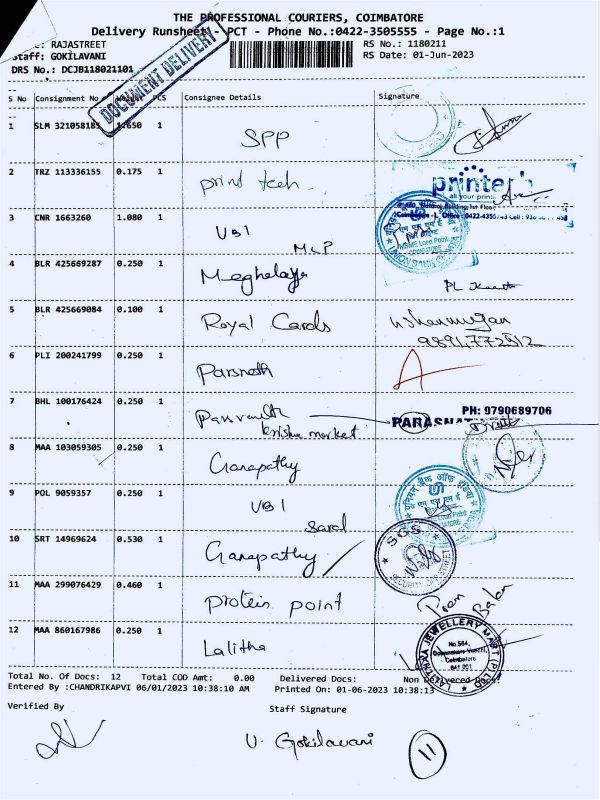 THE PROFESSIONAL COURIERS, COIMBATORE
Delivery Runsheet - PCT - Phone No.:0422-3505555 - Page No.:1
: RAJASTREET
RS No.: 1180211
Staff: GOKILAVANI
RS Date: 01-Jun-2023
DRS No.: DCJB118021101
DOCUMENT DELIVERY
S No Consignment No PCS Consignee Details Signature
1 SLM 321058185 1.650 1 SPP
2 TRZ 113336155 0.175 1 print tech
printech
all your print
3 CNR 1663260 1.080 1 UBI
MLP
MSME Loan Point
4 BLR 425669287 0.250 1 Meghalaya
PL
5 BLR 425669084 0.100 1 Royal Cards
6 PLI 200241799 0.250 1 Parsnath
7 BHL 100176424 0.250 1
krishna market
PH: 9790689706
PARASNATH
8 MAA 103059305 0.250 1 Ganapathy
9 POL 9059357 0.250 1 UBI
यूनियन बैंक ऑफ इंडिया
10 SRT 14969624 0.530 1 Ganapathy
SGS
11 MAA 299076429 0.460 1 protein point
12 MAA 860167986 0.250 1 Lalitha
LALITHRA JEWELLERY MART (P) LTD
No.564,
Coimbatore
641 001
Total No. Of Docs: 12 Total COD Amt: 0.00 Delivered Docs: Non Delivered Docs:
Entered By :CHANDRIKAPVI 06/01/2023 10:38:10 AM Printed On: 01-06-2023 10:38:13
Verified By Staff Signature
V. Gokilavani
11